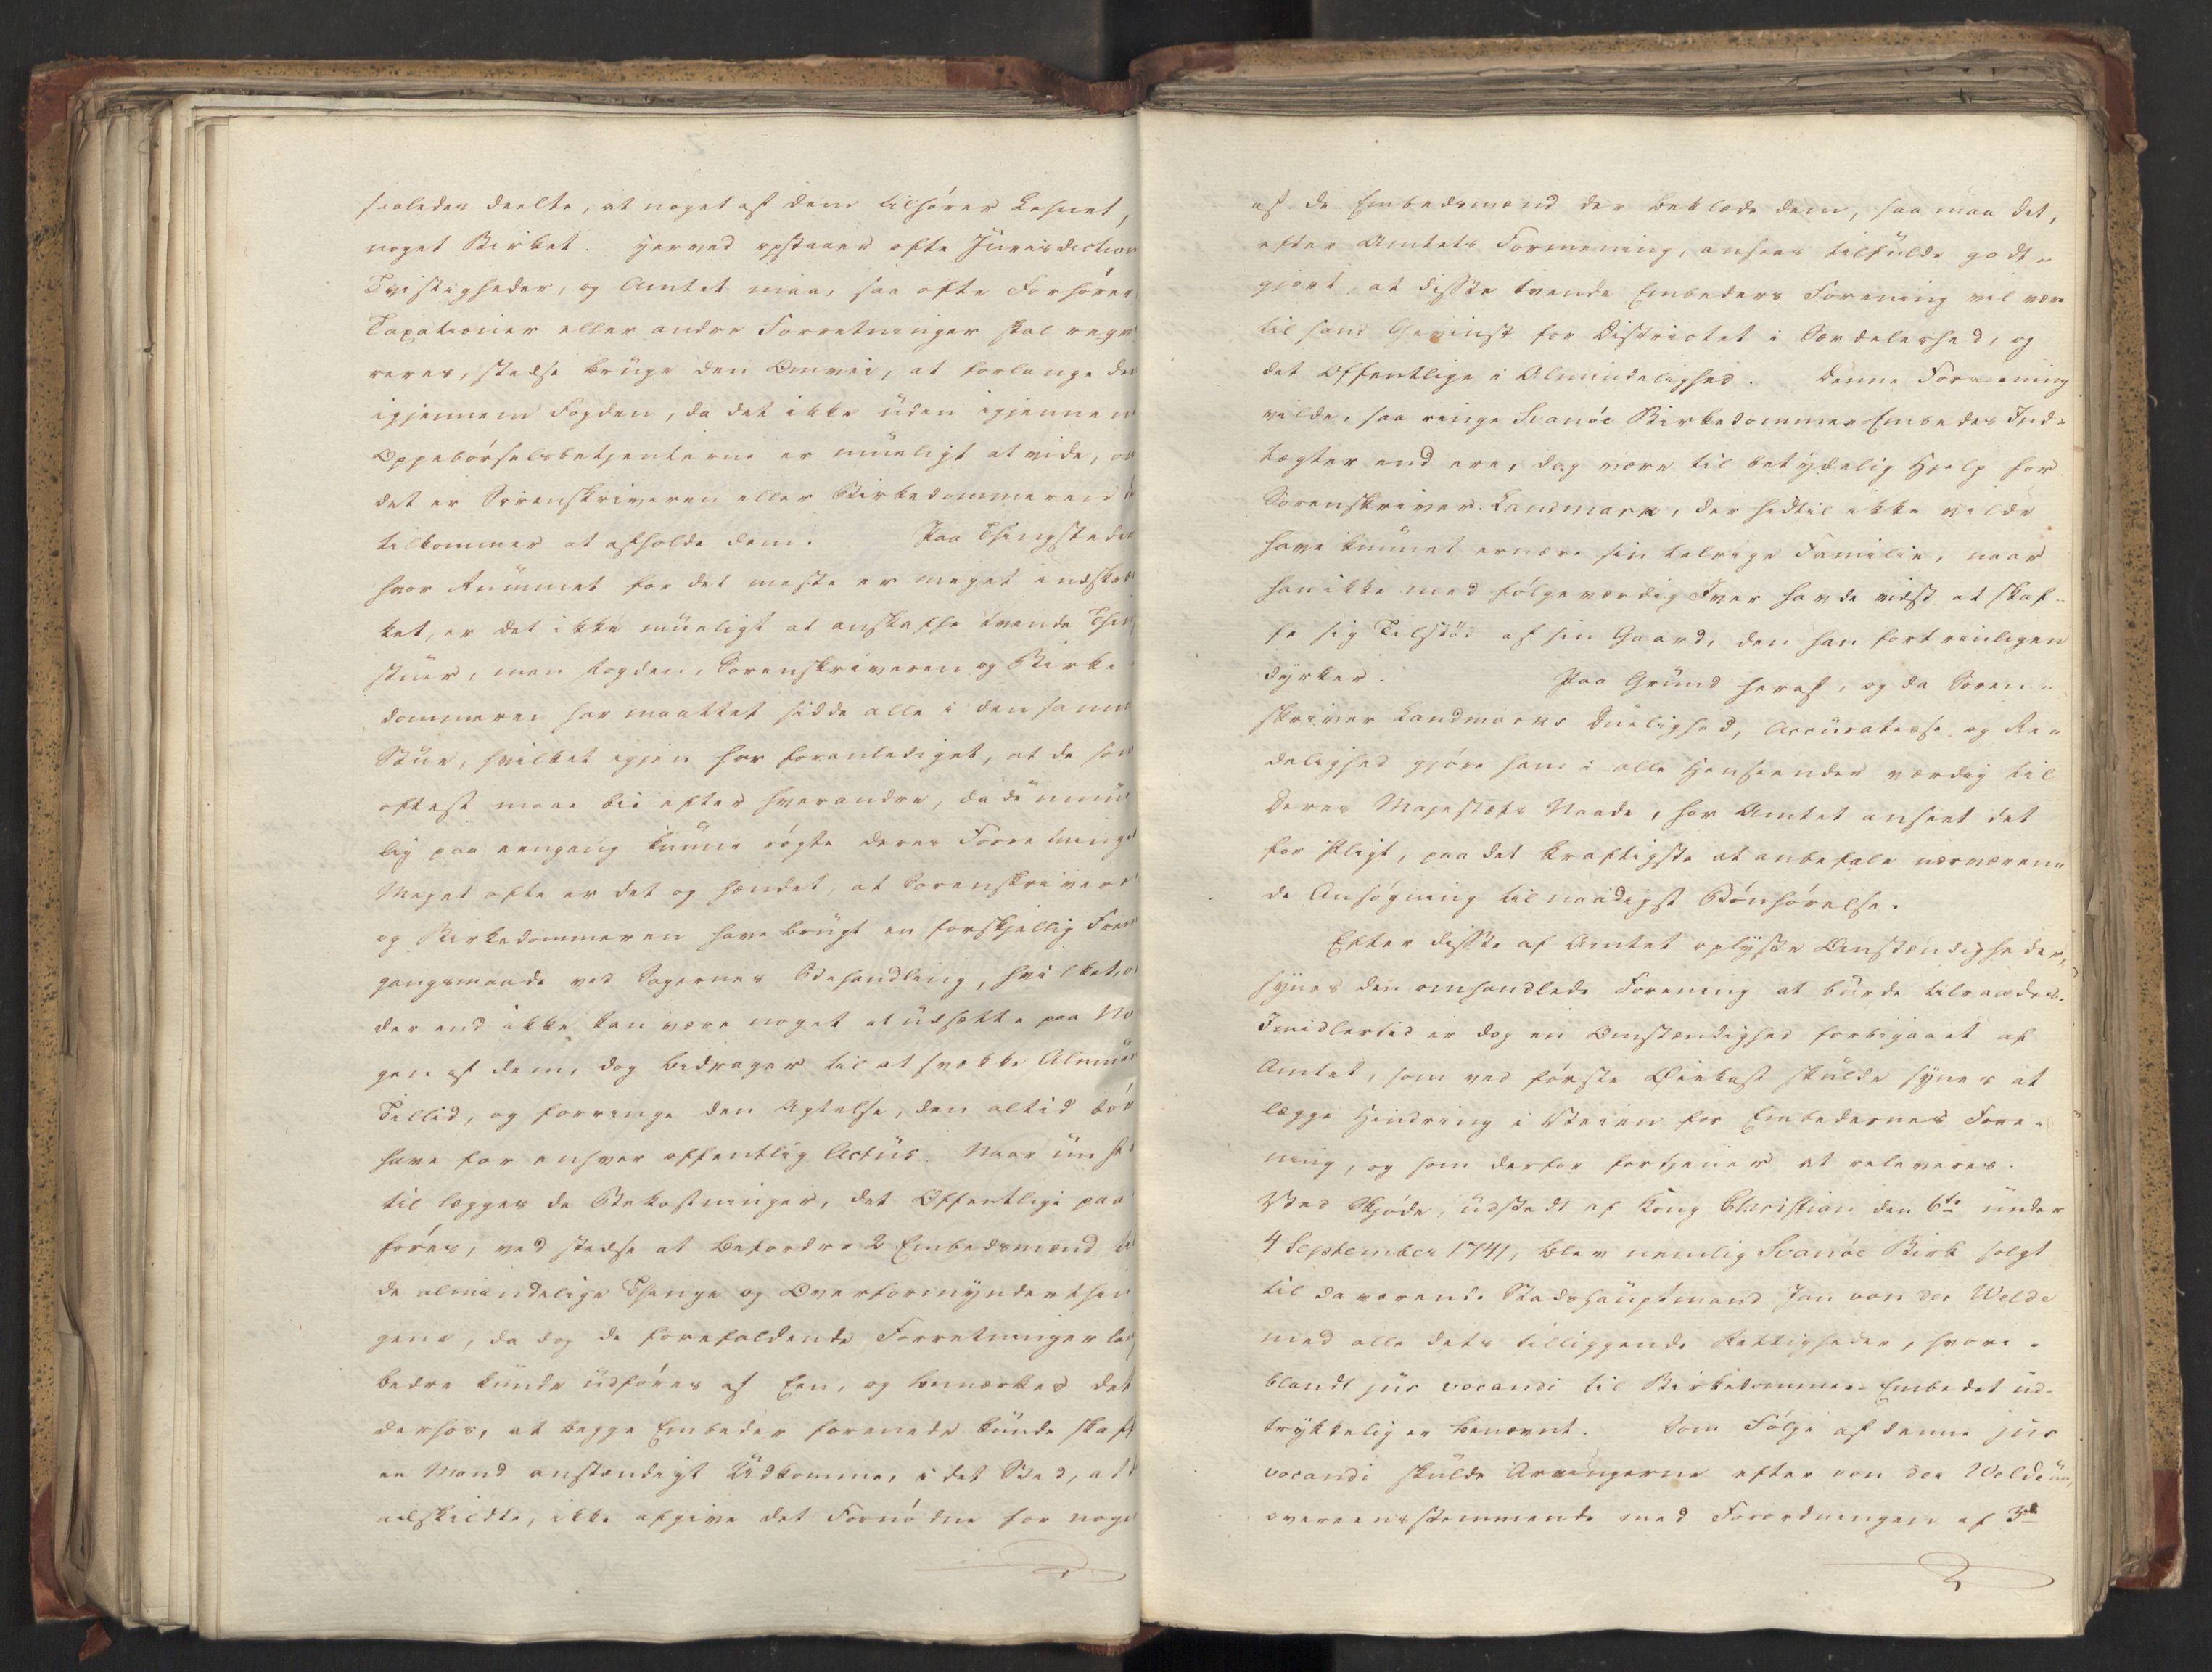 saaledes deelte, at noget af dem tilhører Lehnet,
noget Birket. Herved opstaaer ofte Jurisdiction
Tvistigheder, og Amtet maa, saa ofte Forhører
Taxationer eller andre Forretninger skal reqvi
reres, stedse bruge den Omvei, at forlange de
igjennem Fogden, da det ikke uden igjennem
Oppebørselsbetjenterne er mueligt at vide, om
det er Sorenskriveren eller Birkedommeren
tilkommer at afholde dem. Paa Thingsteder
hvor Rummet for det meste er meget indskræn
ket, er det ikke mueligt at anskaffe tvende Thing
stuer, men Fogden, Sorenskriveren og Birke
dommeren har maattet sidde alle i den samme
Stue, hvilket igjen har foranlediget, at de som
oftest maae bie efter hverandre, da de umue
lig paa eengang kunne røgte deres Forretninger
Meget ofte er det og hændet, at Sorenskriveren
og Birkedommeren have brugt en forskjellig Frem
gangsmaade ved Sagernes Behandling, hvilket, o
der end ikke kan være noget at udsætte paa No
gen af dem, dog bidrager til at svække Almue
Tillid, og forringe den Agtelse, den altid bør
have for enhver offentlig Actus. Naar nu he
til lægges de Bekostninger, det Offentlige paa
føres, ved stedse at befordre 2 Embedsmænd til
de almindelige Thinge og Overformynderthin
gene, da dog de forefaldende Forretninger lan
bedre kunde udføres af Een, og bemærkes det
derhos, at begge Embeder forenede kunde skaffe
en Mand anstændigt Udkomme, i det Sted, at d
adskildte, ikke afgive det Fornødne for noge
af de Embedsmænd der beklæde dem, saa maa det,
efter Amtets Formening, ansees tilfulde godt-
gjort, at disse tvende Embeders Forening vil være
til sand Gevinst for Districtet i Særdeleshed, og
det Offentlige i Almindelighed. Denne Forening
vilde, saa ringe Svanøe Birkedommer Embedes Ind-
tægter end ere, dog være til betydelig Hjelp for
Sorenskriver Landmark, der hidtil ikke vilde
have kunnet ernære sin talrige Familie, naar
han ikke med følgeværdig Iver havde vidst at skaf-
fe sig Tilskud af sin Gaard, den han fortrinligen
dyrker. Paa Grund heraf, og da Soren-
skriver Landmarks Duelighed, Accuratesse og Re-
delighed gjøre ham i alle Henseender værdig til
Deres Majestæts Naade, har Amtet anseet det
for Pligt, paa det kraftigste at anbefale nærværen-
de Ansøgning til naadigst Bønhørelse.
Efter disse af Amtet oplyste Omstændigheder,
synes den omhandlede Forening at burde tilraades.
Imidlertid er dog en Omstændighed forbigaaet af
Amtet, som ved første Øiekast skulde synes at
lægge Hindring i Veien for Embedernes Fore-
ning, og som derfor fortjener at releveres.
Ved Skjøde, udstedt af Kong Christian den 6te under
4 September 1741, blev nemlig Svanøe Birk solgt
til daværende Stadshauptmand Jan von der Welde
med alle dets tilliggende Rettigheder, hvori-
blandt jus vocandi til Birkedommer Embedet ud-
trykkelig er benævnt. Som Følge af denne jus
vocandi skulde Arvingerne efter von der Welde nu,
overeensstemmende med Forordningen af 3die